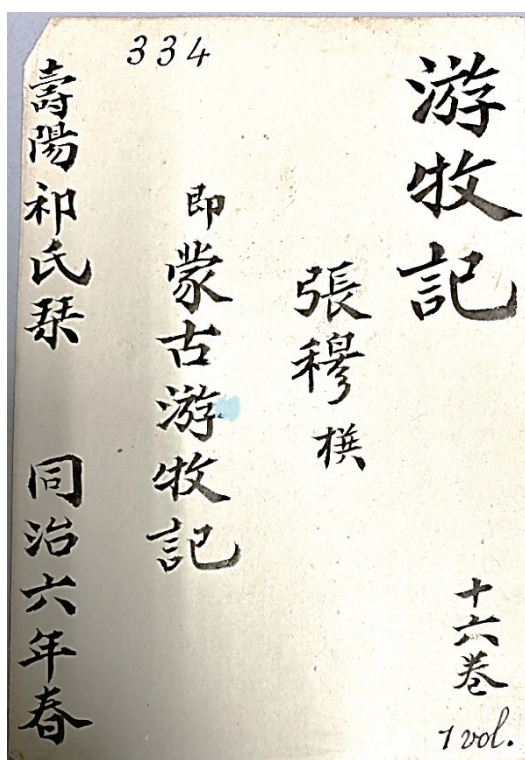 334
游牧記
十六卷
1 vol.
張穆撰
即蒙古游牧記
壽陽祁氏栞 同治六年春